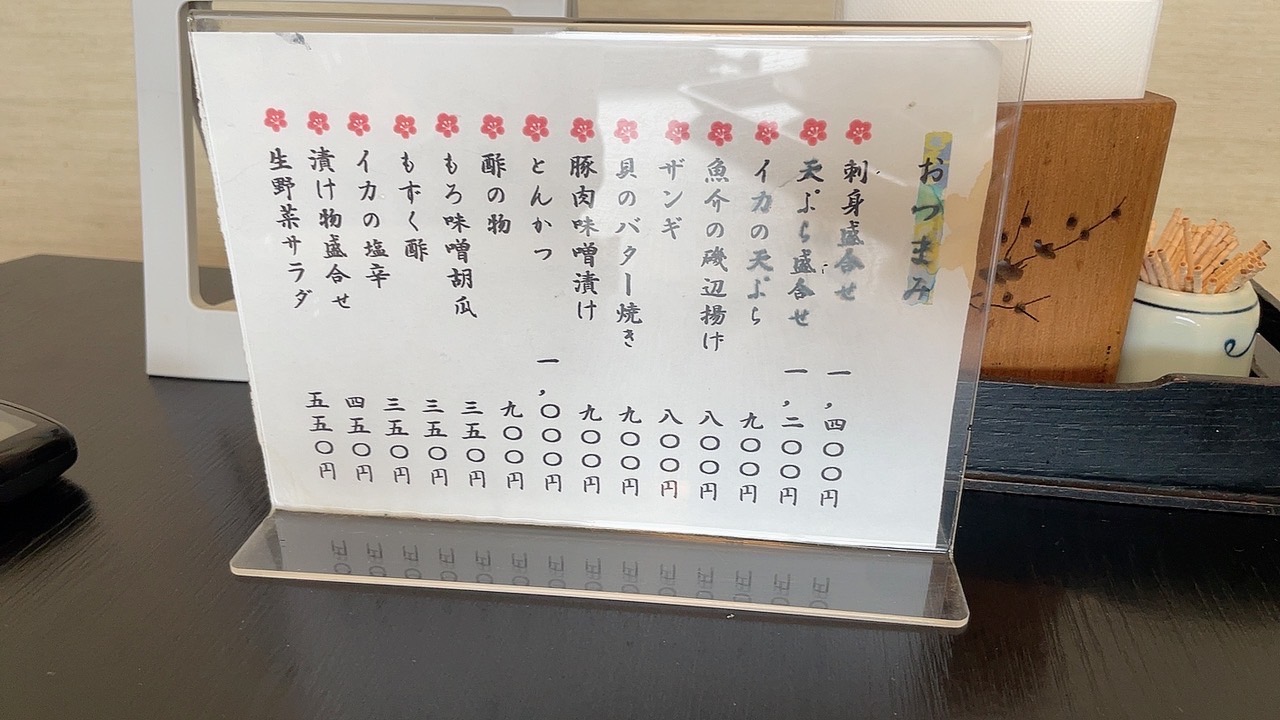 おつまみ
刺身盛合せ 一,四〇〇円
天ぷら盛合せ 一,二〇〇円
イカの天ぷら 九〇〇円
魚介の磯辺揚げ 八〇〇円
ザンギ 八〇〇円
貝のバター焼き 九〇〇円
豚肉味噌漬け 九〇〇円
とんかつ 一,〇〇〇円
酢の物 九〇〇円
もろ味噌胡瓜 三五〇円
もずく酢 三五〇円
イカの塩辛 三五〇円
漬け物盛合せ 四五〇円
生野菜サラダ 五五〇円